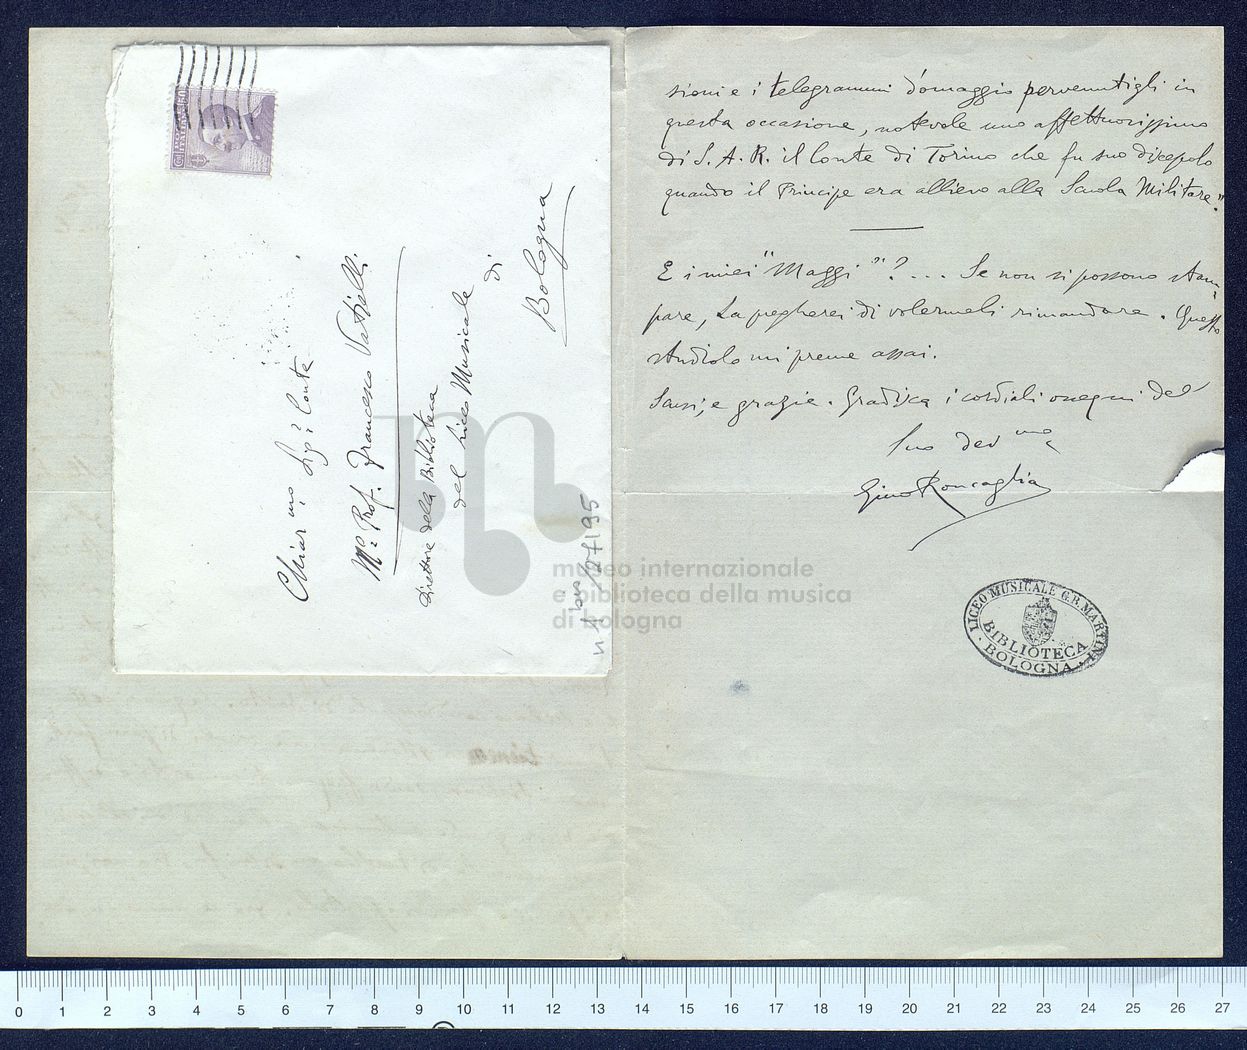 sioni e i telegrammi d'omaggio pervenutigli in
questa occasione, notevole uno affettuosissimo
di S. A. R. il Conte di Torino che fu suo discepolo
quando il Principe era allievo alla Scuola Militare."
E i miei "Maggi"?.... Se non si possono stam-
pare, La pregherei di volermeli rimandare. Questo
studiolo mi preme assai.
Scusi, e grazie. Gradisca i cordiali ossequi del
Suo dev mo
Gino Roncaglia
LICEO MUSICALE G.B. MARTINI
BIBLIOTECA
BOLOGNA
Chiar mo Sig. Conte
Mo Prof. Francesco Vatielli
Direttore della Biblioteca
del Liceo Musicale
di
Bologna
museo internazionale
e biblioteca della musica
di bologna
0 1 2 3 4 5 6 7 8 9 10 11 12 13 14 15 16 17 18 19 20 21 22 23 24 25 26 27